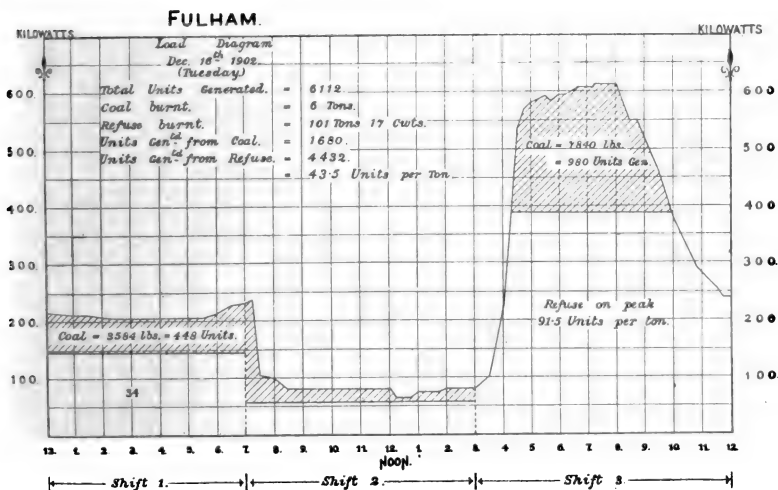 FULHAM.
KILOWATTS KILOWATTS
Load Diagram
Dec. 16th 1902.
(Tuesday)
Total Units Generated. = 6112
Coal burnt. = 6 Tons.
Refuse burnt. = 101 Tons 17 Cwts.
Units Gen.td from Coal. = 1680
Units Gen.td from Refuse. = 4432
= 43·5 Units per Ton
600. 600.
500. 500.
400. 400.
300. 300.
200. 200.
100. 100.
Coal = 7840 lbs.
= 980 Units Gen.
Refuse on peak
91·5 Units per ton.
Coal = 3584 lbs. = 448 Units.
34
12. 1. 2. 3. 4. 5. 6. 7. 8. 9. 10. 11. 12. 1. 2. 3. 4 5. 6. 7. 8. 9. 10. 11. 12.
NOON.
Shift 1. Shift 2. Shift 3.